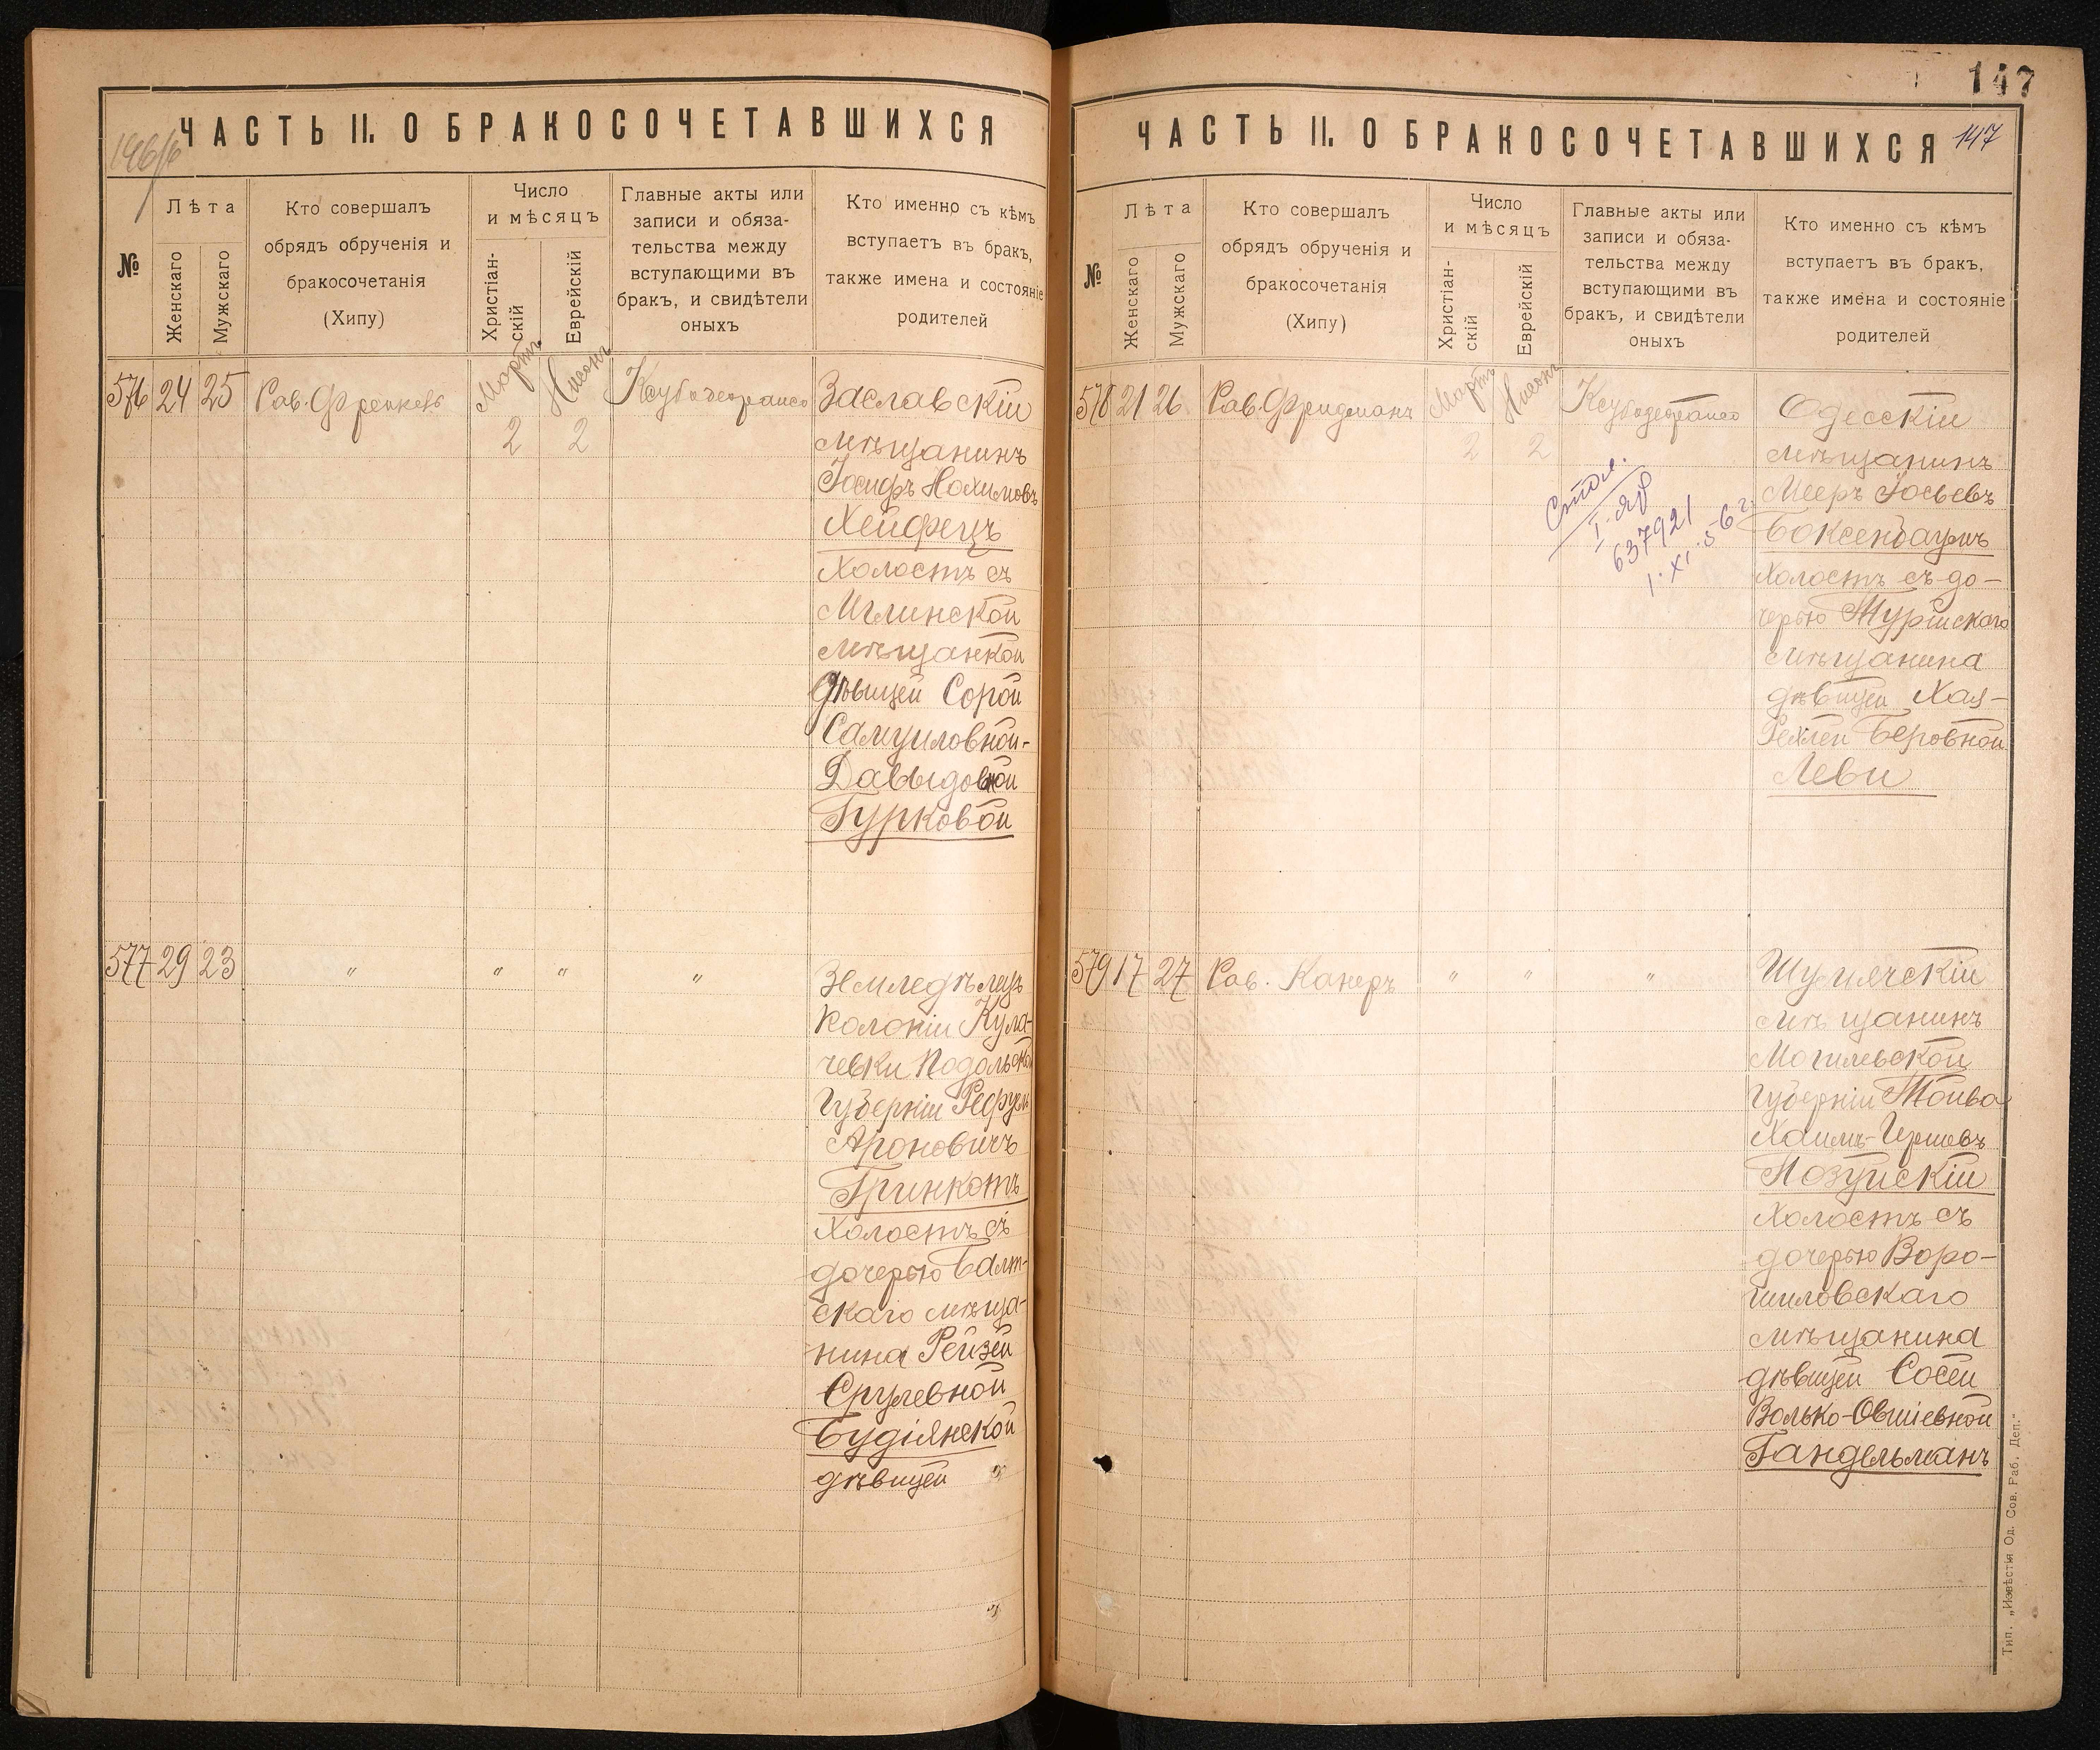 ЧАСТЬ II. О БРАКОСОЧЕТАВШИХСЯ
№
Лѣта
Женскаго
Мужскаго
Кто совершалъ
обрядъ обрученія и
бракосочетанія
(Хипу)
Число
и мѣсяцъ
Христіан-
скій
Еврейскій
Главные акты или
записи и обяза-
тельства между
вступающими въ
бракъ, и свидѣтели
оныхъ
Кто именно съ кѣмъ
вступаетъ въ бракъ,
также имена и состояніе
родителей
576 24 25 Рав. Френкель
Мартъ
2
Нисонъ
2
Заславскій
мѣщанинъ
Іосифъ Нахимовъ
Хейфецъ
холостъ съ
Мглинской
мѣщанкой
дѣвицей Сорой
Самуиловной-
Давыдовной
Гурковой
577 29 23 " " " "
Земледѣлецъ
колоніи Кула-
чевки Подольской
губерніи Рефуель
Ароновичъ
Гринкотъ
холостъ съ
дочерью Балт-
скаго мѣща-
нина Рейзей
Срулевной
Будіянской
дѣвицей
147
ЧАСТЬ II. О БРАКОСОЧЕТАВШИХСЯ 147
№
Лѣта
Женскаго
Мужскаго
Кто совершалъ
обрядъ обрученія и
бракосочетанія
(Хипу)
Число
и мѣсяцъ
Христіан-
скій
Еврейскій
Главные акты или
записи и обяза-
тельства между
вступающими въ
бракъ, и свидѣтели
оныхъ
Кто именно съ кѣмъ
вступаетъ въ бракъ,
также имена и состояніе
родителей
578 21 26 Рав. Фридманъ
Мартъ
2
Нисонъ
2
637921
1.XI.56 г.
Одесскій
мѣщанинъ
Мееръ Іосьевъ
Боксенбаумъ
холостъ съ до-
черью Турійскаго
мѣщанина
дѣвицей Хая-
Рейзлей Беровной
Леви
579 17 27 Рав. Канеръ " " "
Шумячскій
мѣщанинъ
Могилевской
губерніи Тойва
Хаимъ-Гершевъ
Позуйскій
холостъ съ
дочерью Воро-
шиловскаго
мѣщанина
дѣвицей Сосей
Волько-Овшіевной
Гандельманъ
Тип. „Извѣстія Од. Сов. Раб. Деп."